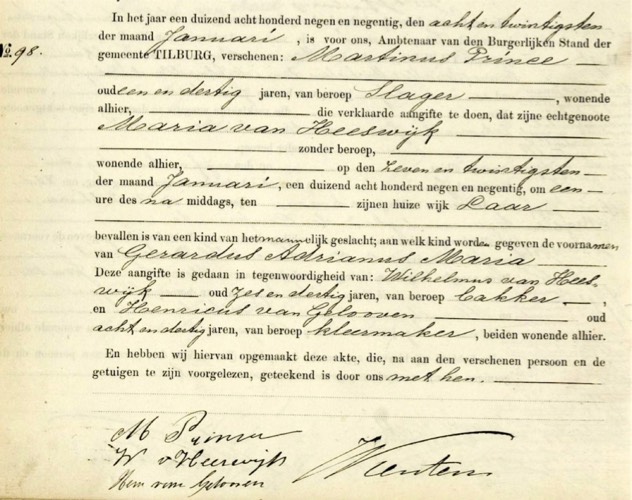 In het jaar een duizend acht honderd negen en negentig, den acht en twintigsten
der maand Januari, is voor ons, Ambtenaar van den Burgerlijken Stand der
No. 98. gemeente TILBURG, verschenen: Martinus Prince
oud een en dertig jaren, van beroep Slager, wonende
alhier, die verklaarde aangifte te doen, dat zijne echtgenoote
Maria van Heeswijk
zonder beroep,
wonende alhier, op den zeven en twintigsten
der maand Januari, een duizend acht honderd negen en negentig, om een
ure des na middags, ten zijnen huize wijk Laar
bevallen is van een kind van het mannelijk geslacht; aan welk kind worden gegeven de voornamen
van Gerardus Adrianus Maria
Deze aangifte is gedaan in tegenwoordigheid van: Wilhelmus van Hees-
wijk oud zes en dertig jaren, van beroep bakker,
en Henricus van Gelooven oud
acht en dertig jaren, van beroep kleermaker, beiden wonende alhier.
En hebben wij hiervan opgemaakt deze akte, die, na aan den verschenen persoon en de
getuigen te zijn voorgelezen, geteekend is door ons met hen.
M Prinse
W v Heeswijk
Hein van Gelooven